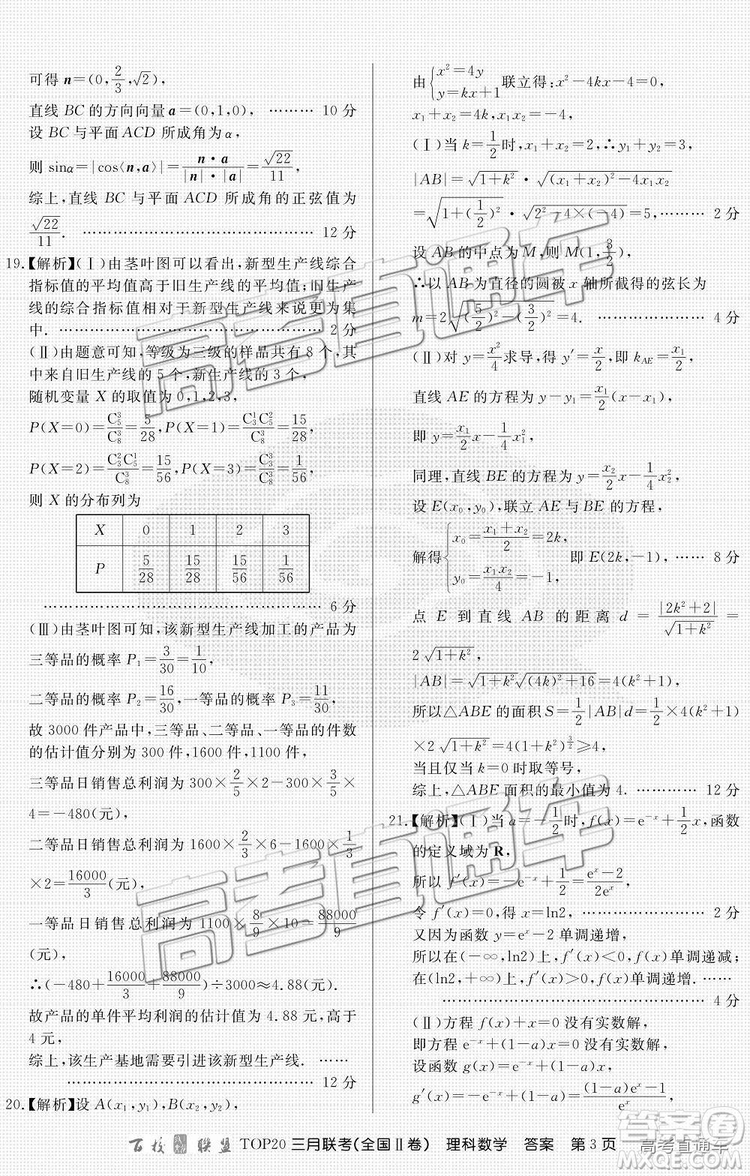 可得 n=(0,2/3,√2),
直线 BC 的方向向量 a=(0,1,0), ……… 10 分
设 BC 与平面 ACD 所成角为α,
则 sinα=|cos⟨n,a⟩|=|n·a/(|n|·|a|)|=√22/11,
综上,直线 BC 与平面 ACD 所成角的正弦值为
√22/11. …………………………… 12 分
19.【解析】(Ⅰ)由茎叶图可以看出,新型生产线综合
指标值的平均值高于旧生产线的平均值;旧生产
线的综合指标值相对于新型生产线来说更为集
中. …………………………… 2 分
(Ⅱ)由题意可知,等级为三级的样品共有 8 个,其
中来自旧生产线的 5 个,新生产线的 3 个,
随机变量 X 的取值为 0,1,2,3,
P(X=0)=C₅³/C₈³=5/28, P(X=1)=C₃¹C₅²/C₈³=15/28,
P(X=2)=C₃²C₅¹/C₈³=15/56, P(X=3)=C₃³/C₈³=1/56,
则 X 的分布列为
X 0 1 2 3
P 5/28 15/28 15/56 1/56
…………………………… 6 分
(Ⅲ)由茎叶图可知,该新型生产线加工的产品为
三等品的概率 P₁=3/30=1/10,
二等品的概率 P₂=16/30,一等品的概率 P₃=11/30,
故 3000 件产品中,三等品、二等品、一等品的件数
的估计值分别为 300 件,1600 件,1100 件,
三等品日销售总利润为 300×2/5×2−300×3/5×
4=−480(元),
二等品日销售总利润为 1600×2/3×6−1600×1/3
×2=16000/3(元),
一等品日销售总利润为 1100×8/9×10=88000/9
(元),
∴(−480+16000/3+88000/9)÷3000≈4.88(元),
故产品的单件平均利润的估计值为 4.88 元,高于
4 元,
综上,该生产基地需要引进该新型生产线. ……
…………………………… 12 分
20.【解析】设 A(x₁,y₁),B(x₂,y₂),
由{x²=4y
y=kx+1 联立得:x²−4kx−4=0,
x₁+x₂=4k,x₁x₂=−4,
(Ⅰ)当 k=1/2时,x₁+x₂=2,∴y₁+y₂=3,
|AB|=√(1+k²)·√((x₁+x₂)²−4x₁x₂)
=√(1+(1/2)²)·√(2²−4×(−4))=5,…… 2 分
设 AB 的中点为 M,则 M(1,3/2),
∴以 AB 为直径的圆被 x 轴所截得的弦长为
m=2√((5/2)²−(3/2)²)=4. …… 4 分
(Ⅱ)对 y=x²/4求导,得 y′=x/2,即 k_AE=x₁/2,
直线 AE 的方程为 y−y₁=x₁/2(x−x₁),
即 y=x₁/2x−1/4x₁²,
同理,直线 BE 的方程为 y=x₂/2x−1/4x₂²,
设 E(x₀,y₀),联立 AE 与 BE 的方程,
解得{x₀=(x₁+x₂)/2=2k,
y₀=x₁x₂/4=−1, 即 E(2k,−1),…… 8 分
点 E 到直线 AB 的距离 d=|2k²+2|/√(1+k²)=
2√(1+k²),
|AB|=√(1+k²)√((4k)²+16)=4(1+k²),
所以△ABE 的面积 S=1/2|AB|d=1/2×4(1+k²)
×2√(1+k²)=4(1+k²)^(3/2)≥4,
当且仅当 k=0 时取等号,
综上,△ABE 面积的最小值为 4. ……… 12 分
21.【解析】(Ⅰ)当 a=−1/2时,f(x)=e⁻ˣ+1/2x,函数
的定义域为 R,
所以 f′(x)=−e⁻ˣ+1/2=(eˣ−2)/2eˣ,
令 f′(x)=0,得 x=ln2, ……… 2 分
又因为函数 y=eˣ−2 单调递增,
所以在(−∞,ln2)上,f′(x)<0,f(x)单调递减;
在(ln2,+∞)上,f′(x)>0,f(x)单调递增. ……
…………………………… 4 分
(Ⅱ)方程 f(x)+x=0 没有实数解,
即方程 e⁻ˣ−ax+x=0 没有实数解,
设函数 g(x)=e⁻ˣ−ax+x,
g′(x)=−e⁻ˣ+1−a=((1−a)eˣ−1)/eˣ,
百校 联盟 TOP20 三月联考(全国Ⅱ卷) 理科数学 答案 第 3 页
高考直通车
高考直通车
高考直通车